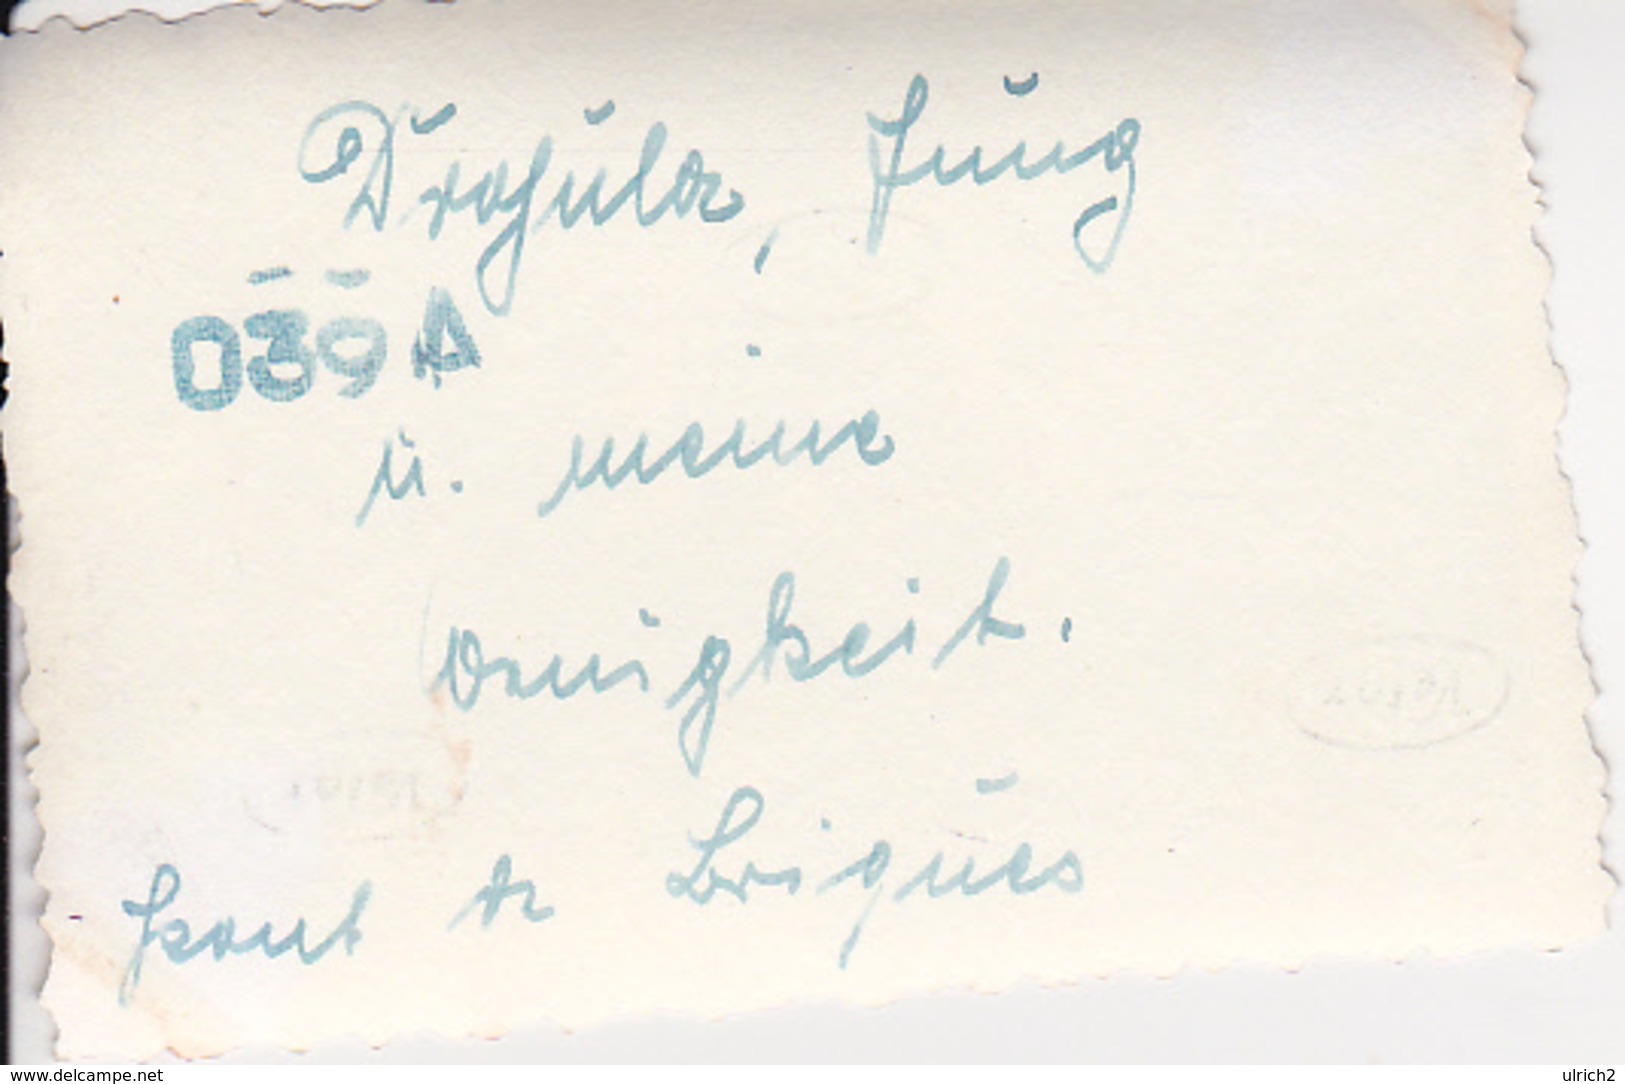 Drohula, Jung
039 A
u. meine
Wenigkeit.
Pont de Briques
www.delcampe.net
ulrich2